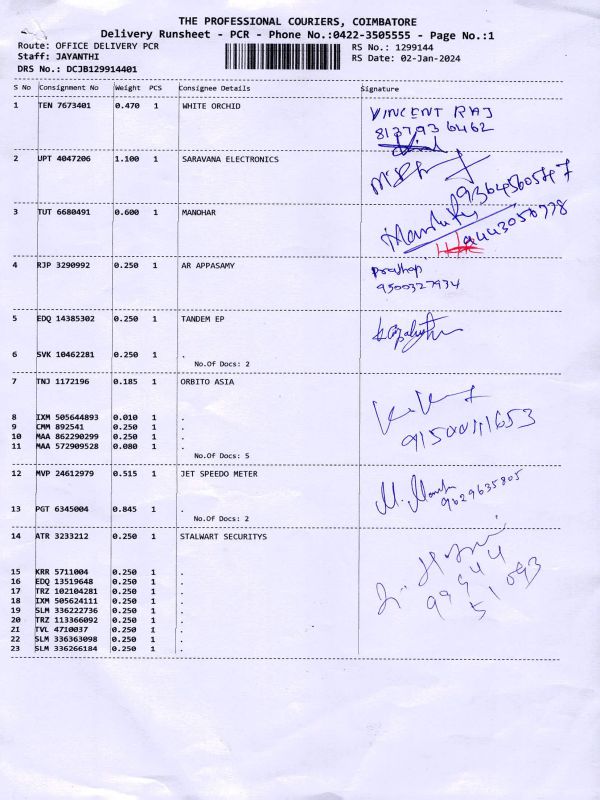 THE PROFESSIONAL COURIERS, COIMBATORE
Delivery Runsheet - PCR - Phone No.:0422-3505555 - Page No.:1
Route: OFFICE DELIVERY PCR RS No.: 1299144
Staff: JAYANTHI RS Date: 02-Jan-2024
DRS No.: DCJB129914401
S No Consignment No Weight PCS Consignee Details Signature
1 TEN 7673401 0.470 1 WHITE ORCHID VINCENT RAJ
8137936462
2 UPT 4047206 1.100 1 SARAVANA ELECTRONICS
9364560547
3 TUT 6680491 0.600 1 MANOHAR
4 RJP 3290992 0.250 1 AR APPASAMY Prathap
9500327934
5 EDQ 14385302 0.250 1 TANDEM EP
6 SVK 10462281 0.250 1 .
No.Of Docs: 2
7 TNJ 1172196 0.185 1 ORBITO ASIA
8 IXM 505644893 0.010 1 .
9 CMM 892541 0.250 1 .
10 MAA 862290299 0.250 1 .
11 MAA 572909528 0.080 1 .
No.Of Docs: 5
12 MVP 24612979 0.515 1 JET SPEEDO METER
9629635805
13 PGT 6345004 0.845 1 .
No.Of Docs: 2
14 ATR 3233212 0.250 1 STALWART SECURITYS
15 KRR 5711004 0.250 1 .
16 EDQ 13519648 0.250 1 .
17 TRZ 102104281 0.250 1 .
18 IXM 505624111 0.250 1 .
19 SLM 336222736 0.250 1 .
20 TRZ 113366092 0.250 1 .
21 TVL 4710037 0.250 1 .
22 SLM 336363098 0.250 1 .
23 SLM 336266184 0.250 1 .